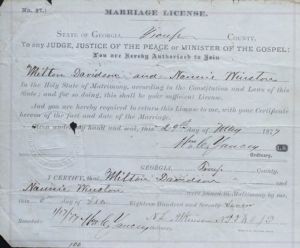 No. 37.
MARRIAGE LICENSE.
STATE OF GEORGIA, Troup COUNTY.
To any JUDGE, JUSTICE OF THE PEACE or MINISTER OF THE GOSPEL:
You are Hereby Authorized to Join
Milton Davidson and Nannie Winston
In the Holy State of Matrimony, according to the Constitution and Laws of this
State; and for so doing, this shall be your sufficient License.
And you are hereby required to return this License to me, with your Certificate
hereon of the fact and date of the Marriage.
Given under my hand and seal, this day of May 1877
Wm C. Yancey
Ordinary.
GEORGIA, Troup County,
I CERTIFY, that Milton Davidson and
Nannie Winston were joined in Matrimony by me,
this day of Eighteen Hundred and Seventy Seven
Recorded
Wm C. Yancey